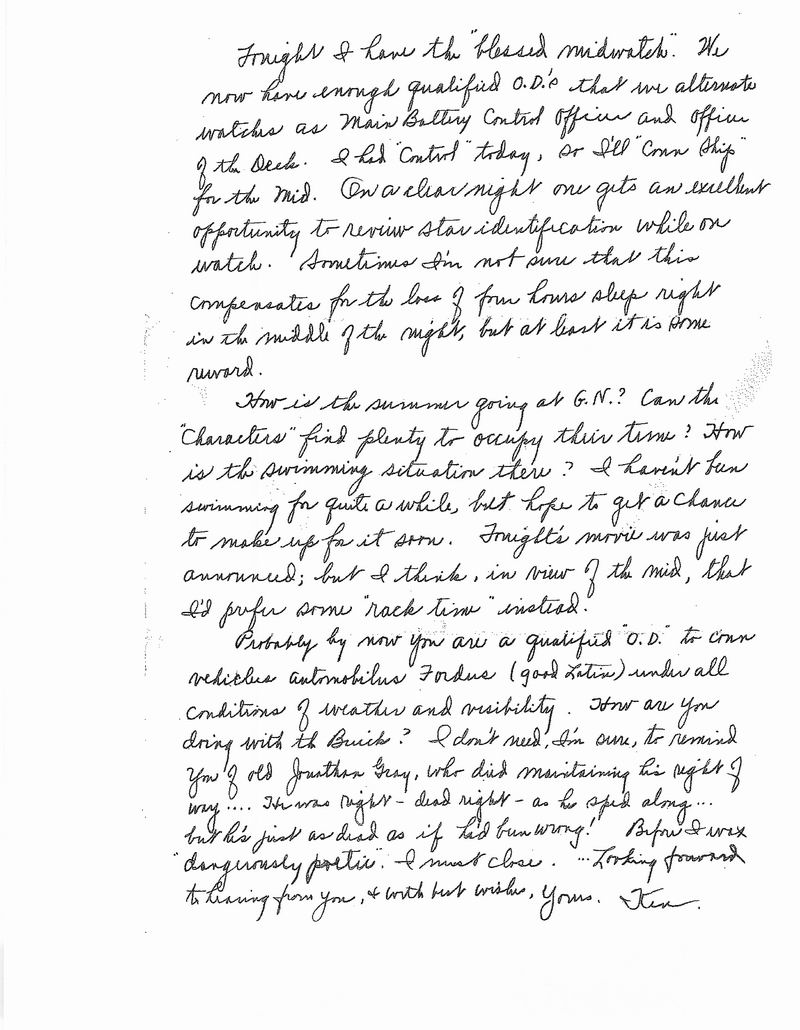 Tonight I have the "blessed midwatch". We
now have enough qualified O.D.'s that we alternate
watches as Main Battery Control Officer and Officer
of the Deck. I had "Control" today, so I'll "Conn Ship"
for the Mid. On a clear night one gets an excellent
opportunity to review star identification while on
watch. Sometimes I'm not sure that this
compensates for the loss of four hours sleep right
in the middle of the night, but at least it is some
reward.
How is the summer going at G.N.? Can the
"Characters" find plenty to occupy their time? How
is the swimming situation there? I haven't been
swimming for quite a while, but hope to get a chance
to make up for it soon. Tonight's movie was just
announced; but I think, in view of the mid, that
I'd prefer some "rack time" instead.
Probably by now you are a qualified "O.D." to conn
vehicles automobilus Fordus (good Latin) under all
conditions of weather and visibility. How are you
doing with th Buick? I don't need, I'm sure, to remind
you of old Jonathan Gray, who died maintaining his right of
way.... He was right - dead right - as he sped along...
but he's just as dead as if he'd been wrong! Before I wax
"dangerously poetic". I must close. ...Looking forward
to hearing from you, & with best wishes, Yours. Ken.